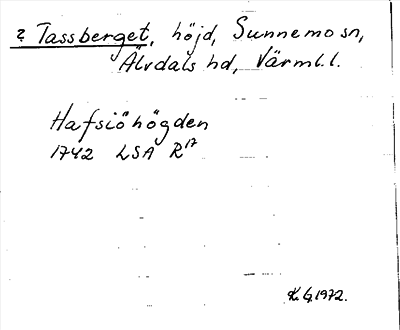 ? Tassberget, höjd, Sunnemo sn,
Älvdals hd, Värml.l.
Hafsiöhögden
1742 LSA R17
K.G. 1972.